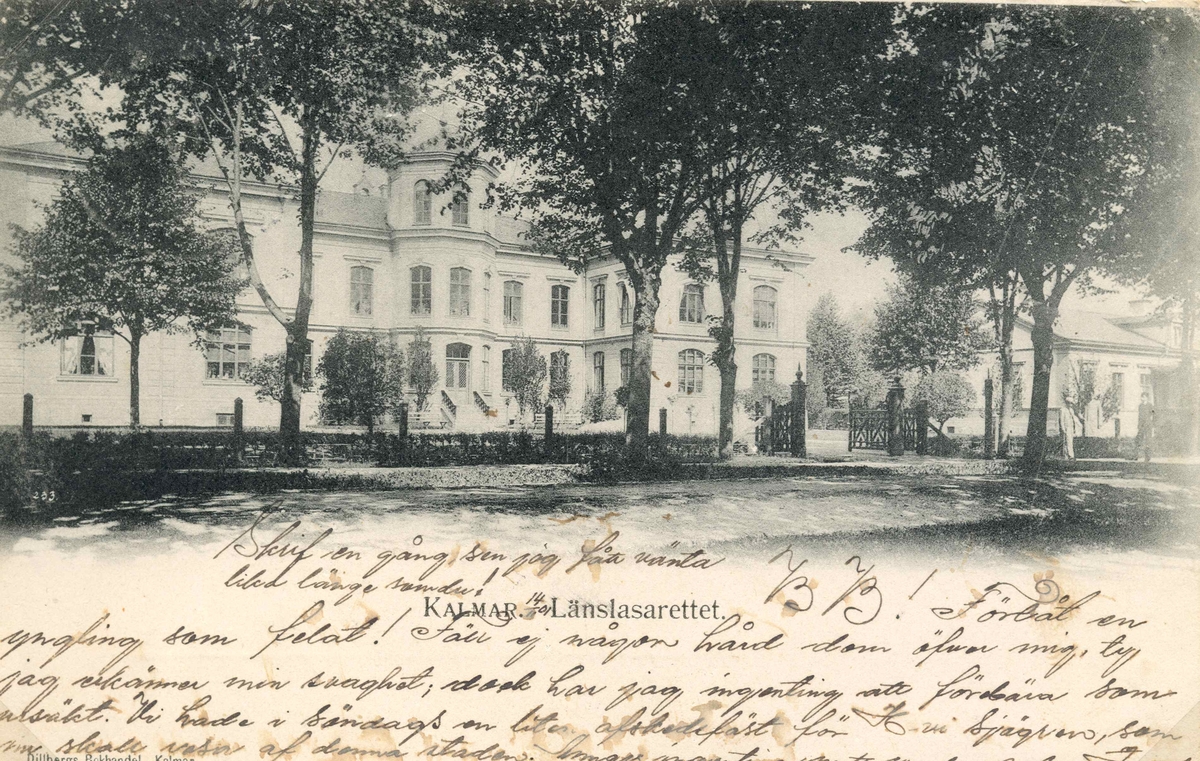 233
Skrif en gång sen jag fått vänta
lika länge som du!
KALMAR. 14/5 01 Länslasarettet.
B B! Förlåt en
yngling som felat! Fäll ej någon hård dom öfver mig, ty
jag erkänner min svaghet; dock har jag ingenting att förebära som
ursäkt. Vi hade i söndags en liten afskedsfäst för H-vi Sjögren, som
nu skall resa af denna staden.
Dillbergs Bokhandel, Kalmar